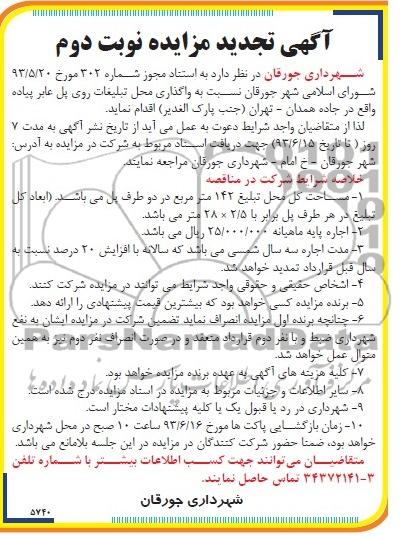 آگهی تجدید مزایده نوبت دوم
شهرداری جورقان در نظر دارد به استناد مجوز شماره ۳۰۲ مورخ ۹۳/۵/۲۰
شورای اسلامی شهر جورقان نسبت به واگذاری محل تبلیغات روی پل عابر پیاده
واقع در جاده همدان - تهران (جنب پارک الغدیر) اقدام نماید.
لذا از متقاضیان واجد شرایط دعوت به عمل می آید از تاریخ نشر آگهی به مدت ۷
روز ( تا تاریخ ۹۳/۶/۱۵) جهت دریافت اسناد مربوط به شرکت در مزایده به آدرس:
شهر جورقان - خ امام - شهرداری جورقان مراجعه نمایند.
خلاصه شرایط شرکت در مناقصه
۱- مساحت کل محل تبلیغ ۱۴۲ متر مربع در دو طرف پل می باشد. (ابعاد کل
تبلیغ در هر طرف پل برابر با ۲/۵ × ۲۸ متر می باشد.
۲- اجاره پایه ماهیانه ۲۵/۰۰۰/۰۰۰ ریال می باشد.
۳- مدت اجاره سه سال شمسی می باشد که سالانه با افزایش ۲۰ درصد نسبت به
سال قبل قرارداد تمدید خواهد شد.
۴- اشخاص حقیقی و حقوقی واجد شرایط می توانند در مزایده شرکت کنند.
۵- برنده مزایده کسی خواهد بود که بیشترین قیمت پیشنهادی را ارائه دهد.
۶- چنانچه برنده اول مزایده انصراف نماید تضمین شرکت در مزایده ایشان به نفع
شهرداری ضبط و با نفر دوم قرارداد منعقد و در صورت انصراف نفر دوم نیز به همین
منوال عمل خواهد شد.
۷- کلیه هزینه های آگهی به عهده برنده مزایده خواهد بود.
۸- سایر اطلاعات و جزئیات مربوط به مزایده در اسناد مزایده درج شده است.
۹- شهرداری در رد یا قبول یک یا کلیه پیشنهادات مختار است.
۱۰- زمان بازگشایی پاکت ها مورخ ۹۳/۶/۱۶ ساعت ۱۰ صبح در محل شهرداری
خواهد بود، ضمنا حضور شرکت کنندگان در مزایده در این جلسه بلامانع می باشد.
متقاضیان می توانند جهت کسب اطلاعات بیشتر با شماره تلفن
۳-۳۴۳۷۲۱۴۱ تماس حاصل نمایند.
شهرداری جورقان
۵۷۴۰
ParsNamadData